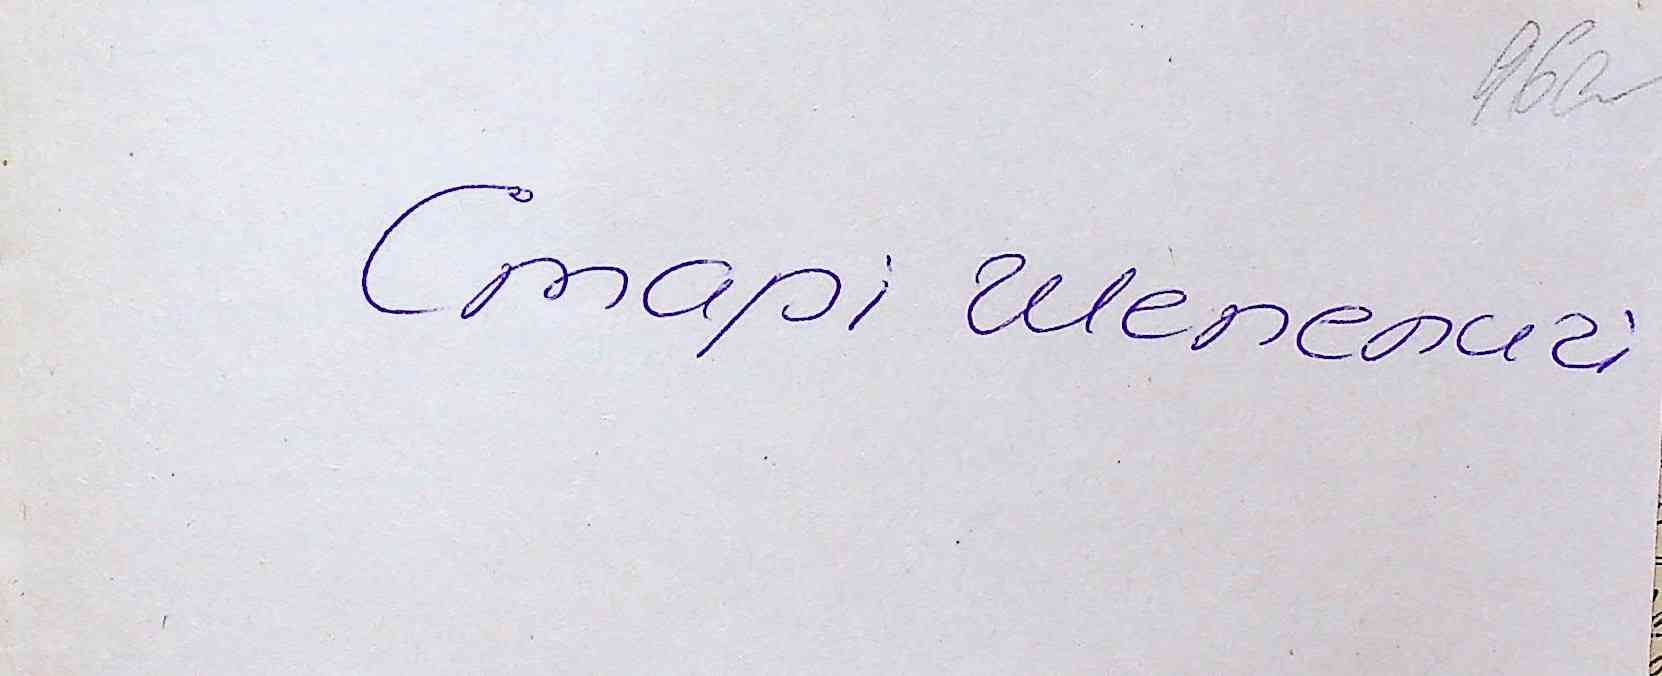 Старі Шепеличі